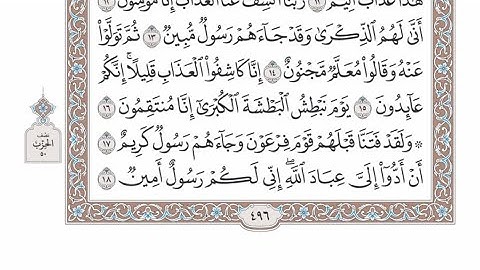 هَٰذَا عَذَابٌ أَلِيمٌ ١١ رَّبَّنَا ٱكْشِفْ عَنَّا ٱلْعَذَابَ إِنَّا مُؤْمِنُونَ ١٢
أَنَّىٰ لَهُمُ ٱلذِّكْرَىٰ وَقَدْ جَآءَهُمْ رَسُولٌ مُّبِينٌ ١٣ ثُمَّ تَوَلَّوْا۟
عَنْهُ وَقَالُوا۟ مُعَلَّمٌ مَّجْنُونٌ ١٤ إِنَّا كَاشِفُوا۟ ٱلْعَذَابِ قَلِيلًا ۚ إِنَّكُمْ
عَآئِدُونَ ١٥ يَوْمَ نَبْطِشُ ٱلْبَطْشَةَ ٱلْكُبْرَىٰٓ إِنَّا مُنتَقِمُونَ ١٦
۞ وَلَقَدْ فَتَنَّا قَبْلَهُمْ قَوْمَ فِرْعَوْنَ وَجَآءَهُمْ رَسُولٌ كَرِيمٌ ١٧
أَنْ أَدُّوٓا۟ إِلَىَّ عِبَادَ ٱللَّهِ ۖ إِنِّى لَكُمْ رَسُولٌ أَمِينٌ ١٨
نصف
الحزب
٥٠
٤٩٦